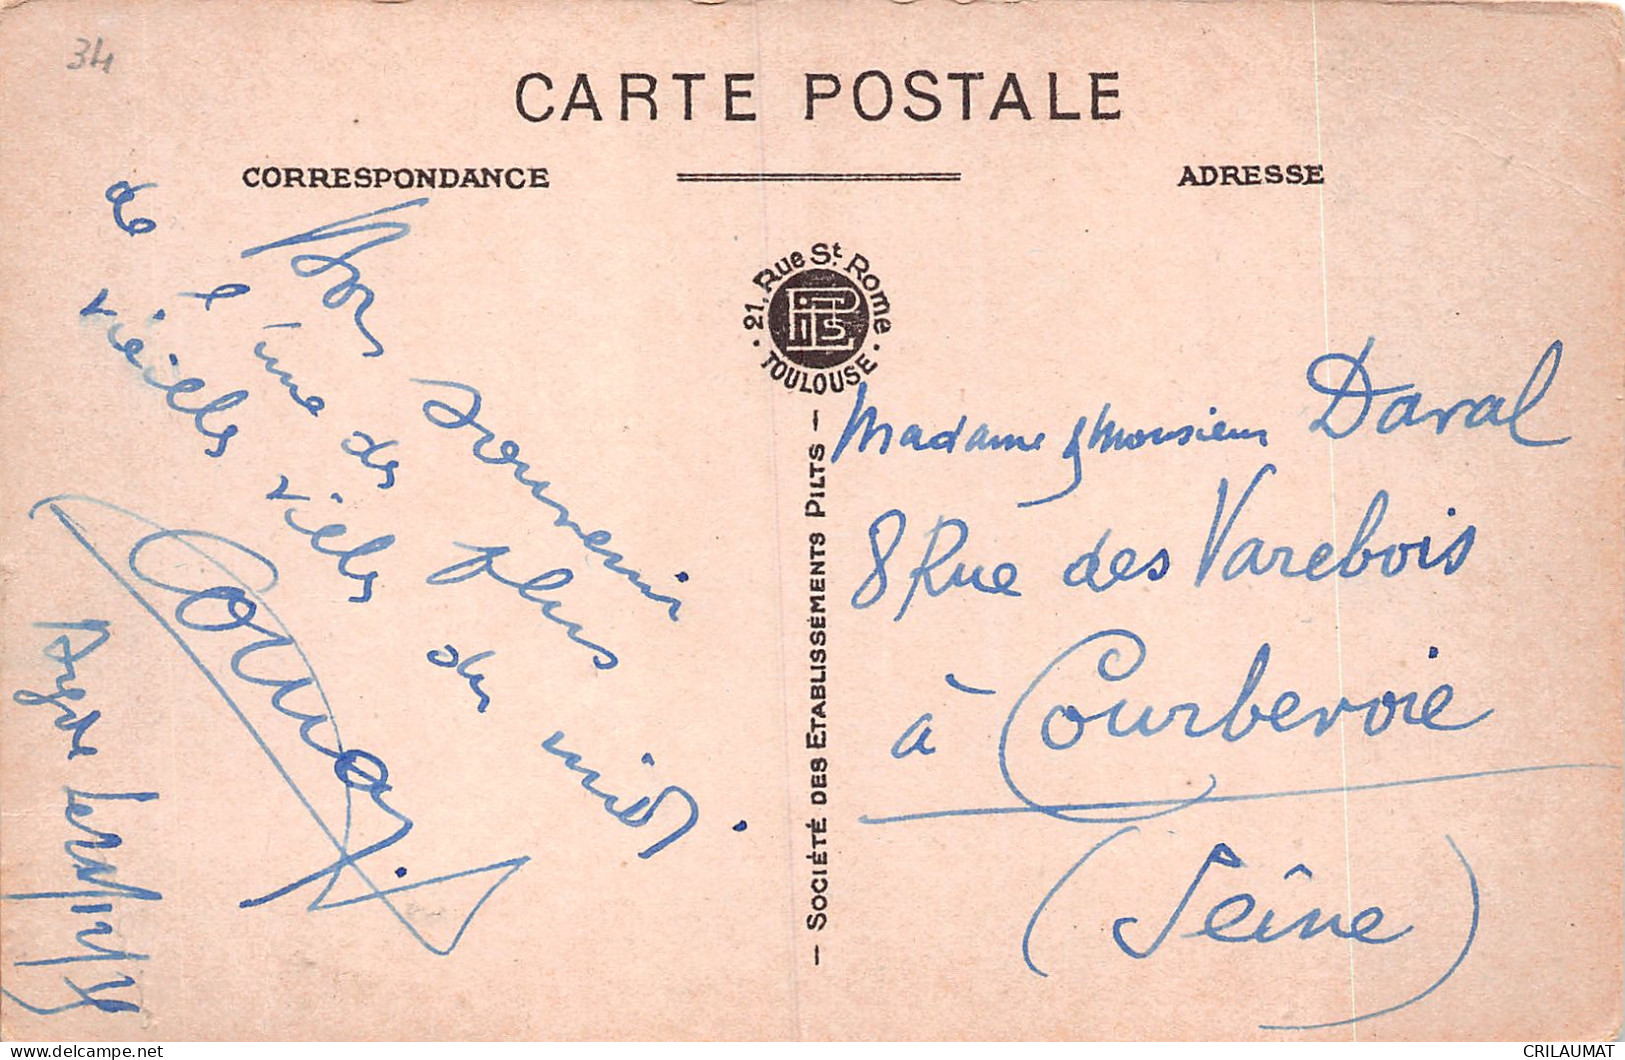 34
CARTE POSTALE
CORRESPONDANCE
ADRESSE
21, Rue St. Rome
PILTS
· TOULOUSE ·
— SOCIÉTÉ DES ETABLISSÉMENTS PILTS —
Bon souvenir
de l'une des plus
vieilles villes du midi.
Agde le
Madame & Monsieur Daval
8 Rue des Varebois
à Courbevoie
(Seîne)
CRILAUMAT